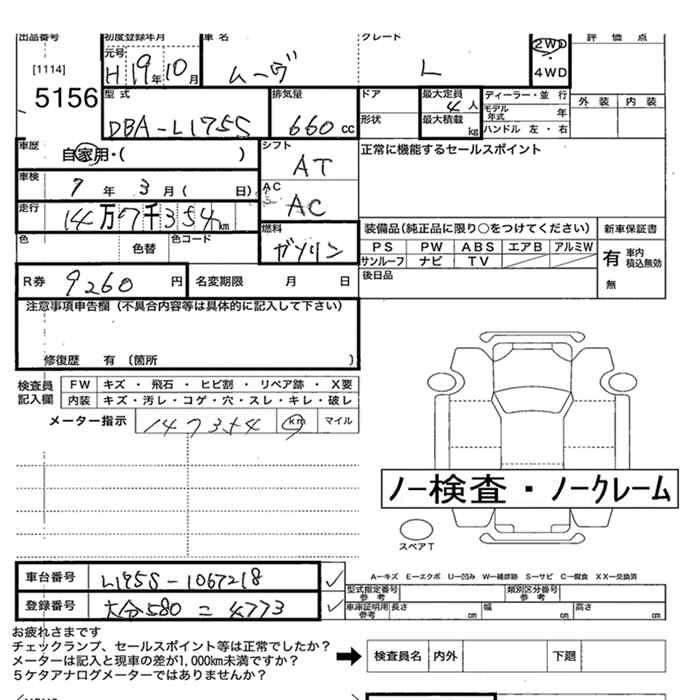 出品番号 初度登録年月 車名 グレード 評価点
[1114] 元号 H 19年 10月 ムーヴ L 2WD ・ 4WD
5156 型式 排気量 ドア 最大定員 4人 ディーラー・並行 外装 内装
DBA-L175S 660cc 形状 最大積載 kg モデル年式 年
ハンドル 左・右
車歴 自家用・( ) シフト AT 正常に機能するセールスポイント
車検 7年 3月( 日) AC AC
走行 14万7千354km 装備品(純正品に限り○をつけてください) 新車保証書
色 色替 色コード 燃料 ガソリン PS PW ABS エアB アルミW 有 車内積込無効
サンルーフ ナビ TV
R券 9260円 名変期限 月 日 後日品 無
注意事項申告欄(不具合内容等は具体的に記入して下さい)
修復歴 有 〔箇所 〕
検査員記入欄 FW キズ・飛石・ヒビ割・リペア跡・X要
内装 キズ・汚レ・コゲ・穴・スレ・キレ・破レ
メーター指示 147354 km マイル
ノー検査・ノークレーム
スペアT
車台番号 L175S-1067218 ✓ A−キズ E−エクボ U−凹み W−補修跡 S−サビ C−腐食 XX−交換済
型式指定番号 参考 類別区分番号 参考
登録番号 大分580 こ 4773 ✓ 車庫証明用参考 長さ cm 幅 cm 高さ cm
お疲れさまです
チェックランプ、セールスポイント等は正常でしたか?
メーターは記入と現車の差が1,000km未満ですか? ➡ 検査員名 内外 下廻
5ケタアナログメーターではありませんか?